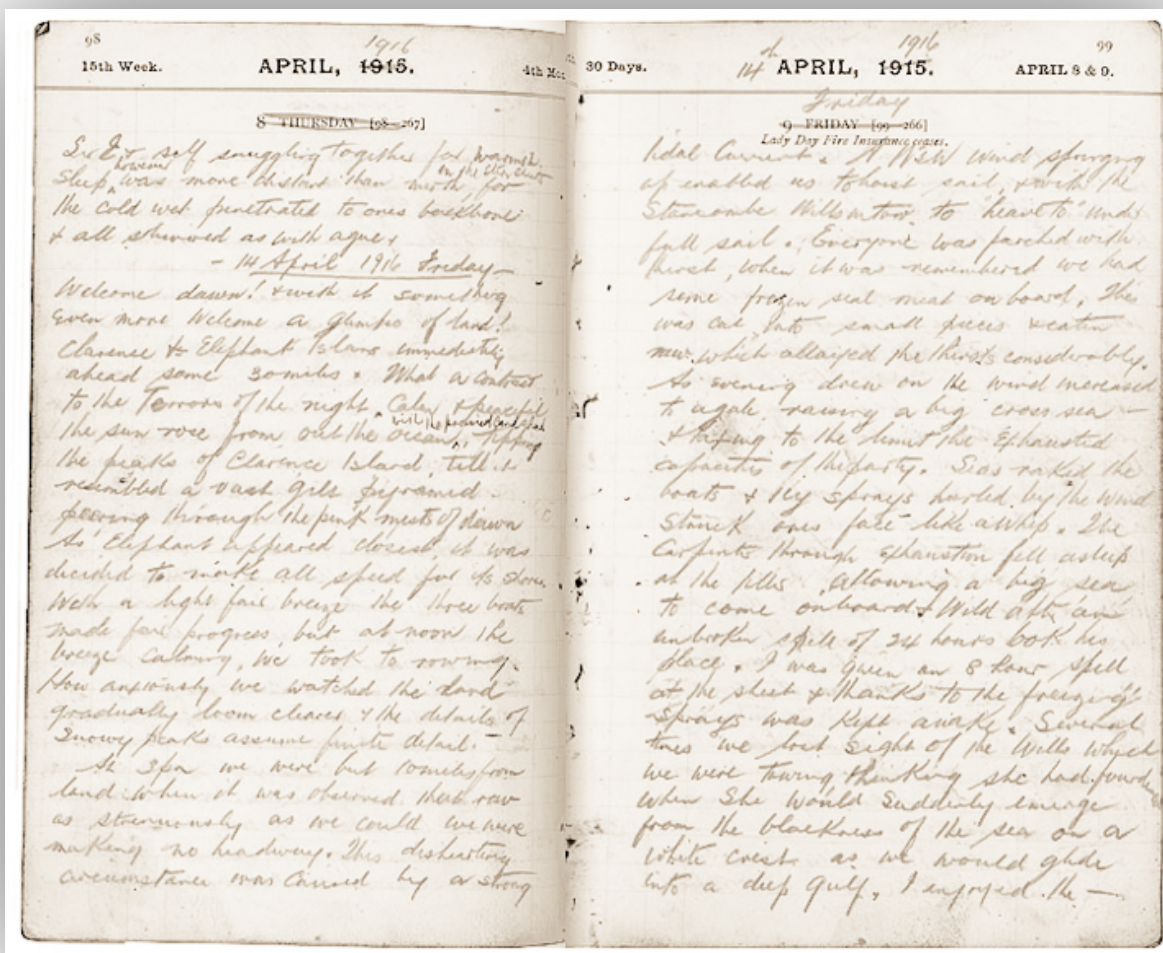 98
1916
15th Week. APRIL, 1915. 4th Mo
8 THURSDAY [98—267]
Sir E & self snuggling together for warmth
in the
Sleep, however was more distant than mirth, for
the cold wet penetrated to ones backbone
& all shivered as with ague.
— 14 April 1916 Friday —
Welcome dawn! & with it something
Even more Welcome a glimpse of land!
Clarence & Elephant Islans immediately
ahead some 30 miles. What a contrast
to the Terrors of the night. Calm & peaceful
the sun rose from out the ocean, tipping
the peaks of Clarence Island, till it
resembled a vast gilt pyramid
peering through the pink mists of dawn
As Elephant appeared closest, it was
decided to make all speed for its shore.
With a light fair breeze the three boats
made fair progress, but at noon the
breeze calming, we took to rowing.
How anxiously we watched the land
gradually loom clearer & the details of
Snowy peaks assume finite detail. —
At 3pm we were but 10 miles from
land when it was observed that row
as strenuously as we could we were
making no headway. This disheartening
circumstance was caused by a strong
99
1916
30 Days. 14 of APRIL, 1915. APRIL 8 & 9.
Friday
9 FRIDAY [99—266]
Lady Day Fire Insurance ceases.
tidal Current. A WSW wind springing
up enabled us to hoist sail, & with the
Stancombe Wills in tow to "heave to" under
full sail. Everyone was parched with
thirst, when it was remembered we had
some frozen seal meat on board. This
was cut into small pieces & eaten
raw, which allayed the thirsts considerably.
As evening drew on the wind increased
to a gale, raising a big cross sea —
& taxing to the limit the Exhausted
capacities of the party. Seas raked the
boats & Icy sprays hurled by the wind
Struck ones face like a whip. The
Carpenter through Exhaustion fell asleep
at the tiller, allowing a big sea
to come onboard & Wild after an
unbroken spell of 24 hours took his
place. I was given an 8 hour spell
at the sheet & thanks to the freezing
Sprays was kept awake. Several
times we lost Sight of the Wills which
we were towing thinking she had foundered
when She would Suddenly emerge
from the blackness of the sea on a
White crest as we would glide
into a deep gulf. I enjoyed the —